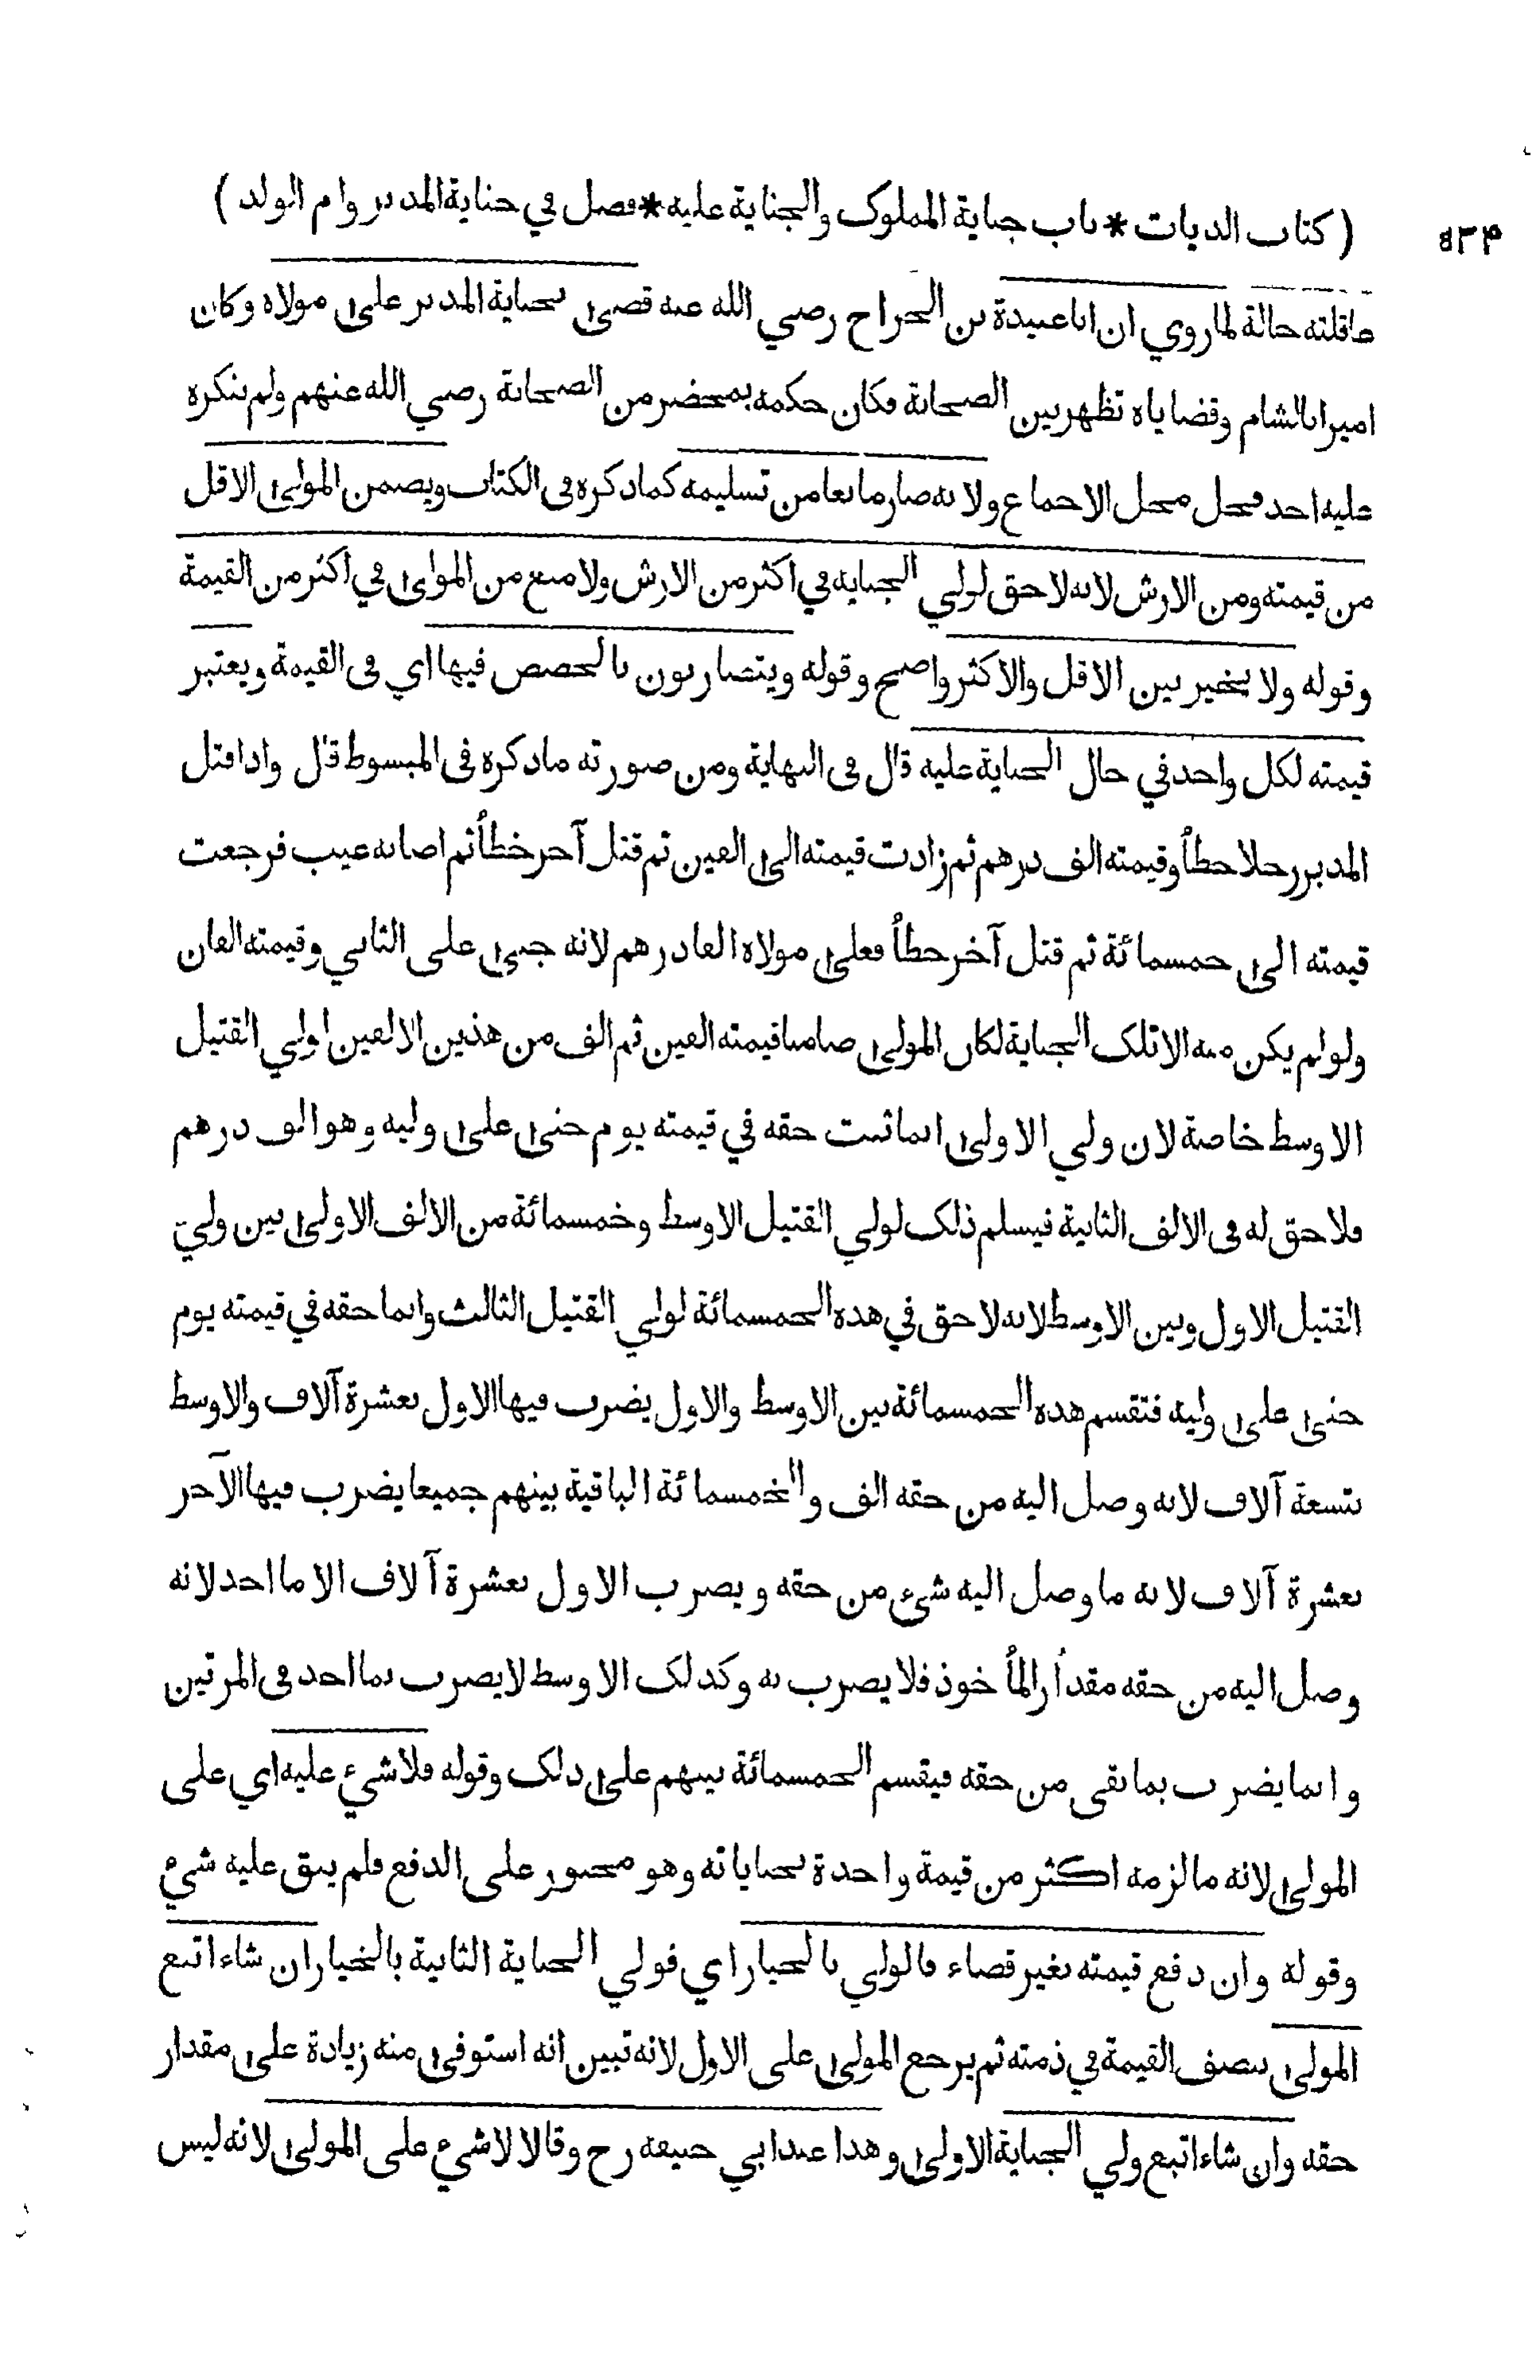 ( كتاب الديات * باب جناية المملوك والجناية عليه * فصل في جناية المدبر وام الولد ) ٥٣٤
عاقلته حالة لما روي ان ابا عبيدة بن الجراح رضي الله عنه قضى بجناية المدبر على مولاه وكان
اميرا بالشام وقضاياه تظهر بين الصحابة فكان حكمه بمحضر من الصحابة رضي الله عنهم ولم ينكره
عليه احد فحل محل الاجماع ولانه صار مانعا من تسليمه كما ذكره في الكتاب ويضمن المولى الاقل
من قيمته ومن الارش لانه لا حق لولي الجناية في اكثر من الارش ولا منع من المولى في اكثر من القيمة
وقوله ولا يخير بين الاقل والاكثر واضح وقوله ويتضاربون بالحصص فيها اي في القيمة ويعتبر
قيمته لكل واحد في حال الجناية عليه قال في النهاية ومن صورته ما ذكره في المبسوط قال واذا قتل
المدبر رجلا خطأ وقيمته الف درهم ثم زادت قيمته الى الفين ثم قتل آخر خطأ ثم اصابه عيب فرجعت
قيمته الى خمسمائة ثم قتل آخر خطأ فعلى مولاه الفا درهم لانه جنى على الثاني وقيمته الفان
ولو لم يكن منه الا تلك الجناية لكان المولى ضامنا قيمته الفين ثم الف من هذين الالفين لولي القتيل
الاوسط خاصة لان ولي الاولى انما ثبت حقه في قيمته يوم جنى على وليه وهو الف درهم
فلا حق له في الالف الثانية فيسلم ذلك لولي القتيل الاوسط وخمسمائة من الالف الاولى بين ولي
القتيل الاول وبين الاوسط لانه لا حق في هذه الخمسمائة لولي القتيل الثالث وانما حقه في قيمته يوم
جنى على وليه فتقسم هذه الخمسمائة بين الاوسط والاول يضرب فيها الاول بعشرة آلاف والاوسط
بتسعة آلاف لانه وصل اليه من حقه الف والخمسمائة الباقية بينهم جميعا يضرب فيها الآخر
بعشرة آلاف لانه ما وصل اليه شيء من حقه ويضرب الاول بعشرة آلاف الا ما اخذ لانه
وصل اليه من حقه مقدار المأخوذ فلا يضرب به وكذلك الاوسط لا يضرب بما اخذ في المرتين
وانما يضرب بما بقى من حقه فيقسم الخمسمائة بينهم على ذلك وقوله فلا شيء عليه اي على
المولى لانه ما لزمه اكثر من قيمة واحدة بجناياته وهو مجبور على الدفع فلم يبق عليه شيء
وقوله وان دفع قيمته بغير قضاء فالولي بالخيار اي فولي الجناية الثانية بالخيار ان شاء اتبع
المولى بنصف القيمة في ذمته ثم يرجع المولى على الاول لانه تبين انه استوفى منه زيادة على مقدار
حقه وان شاء اتبع ولي الجناية الاولى وهذا عند ابي حنيفه رح وقالا لا شيء على المولى لانه ليس